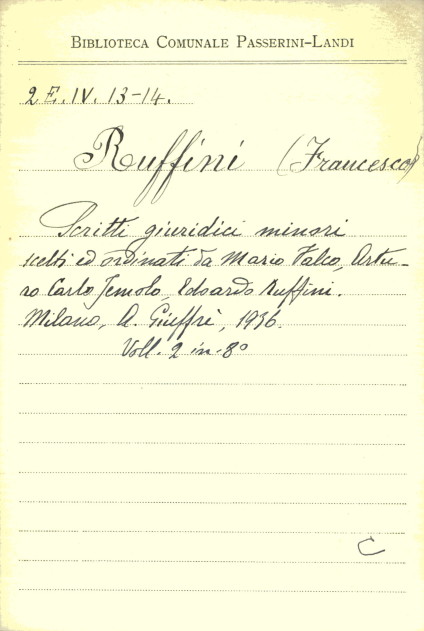 BIBLIOTECA COMUNALE PASSERINI-LANDI
2 E. IV. 13-14.
Ruffini (Francesco)
Scritti giuridici minori
scelti ed ordinati da Mario Falco, Artu-
ro Carlo Jemolo, Edoardo Ruffini.
Milano, A. Giuffrè, 1936.
Voll. 2 in-8°
C